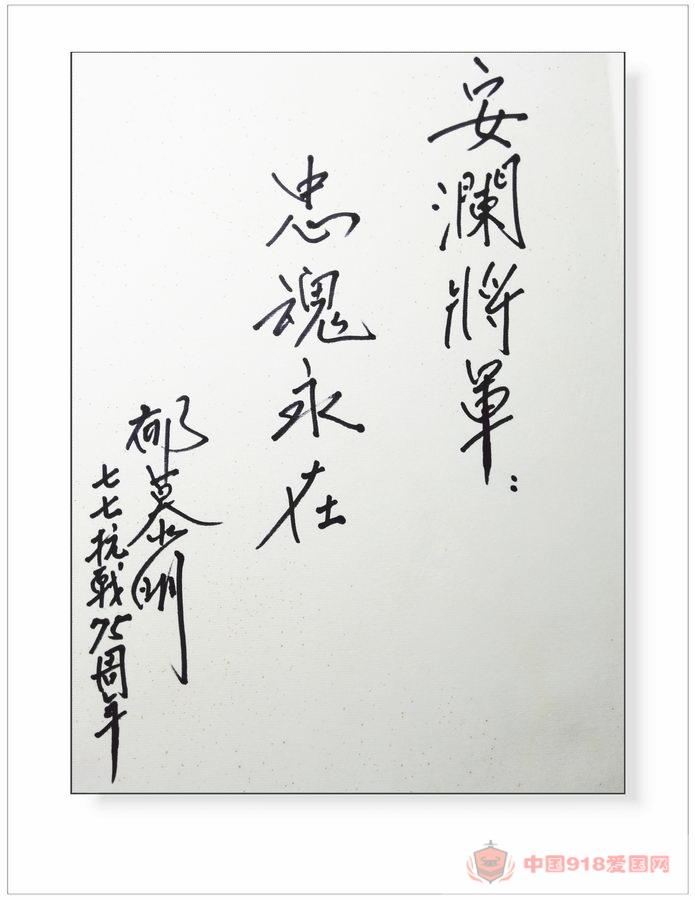 安瀾將軍：
忠魂永在
郁慕明
七七抗戰75周年
中国918爱国网